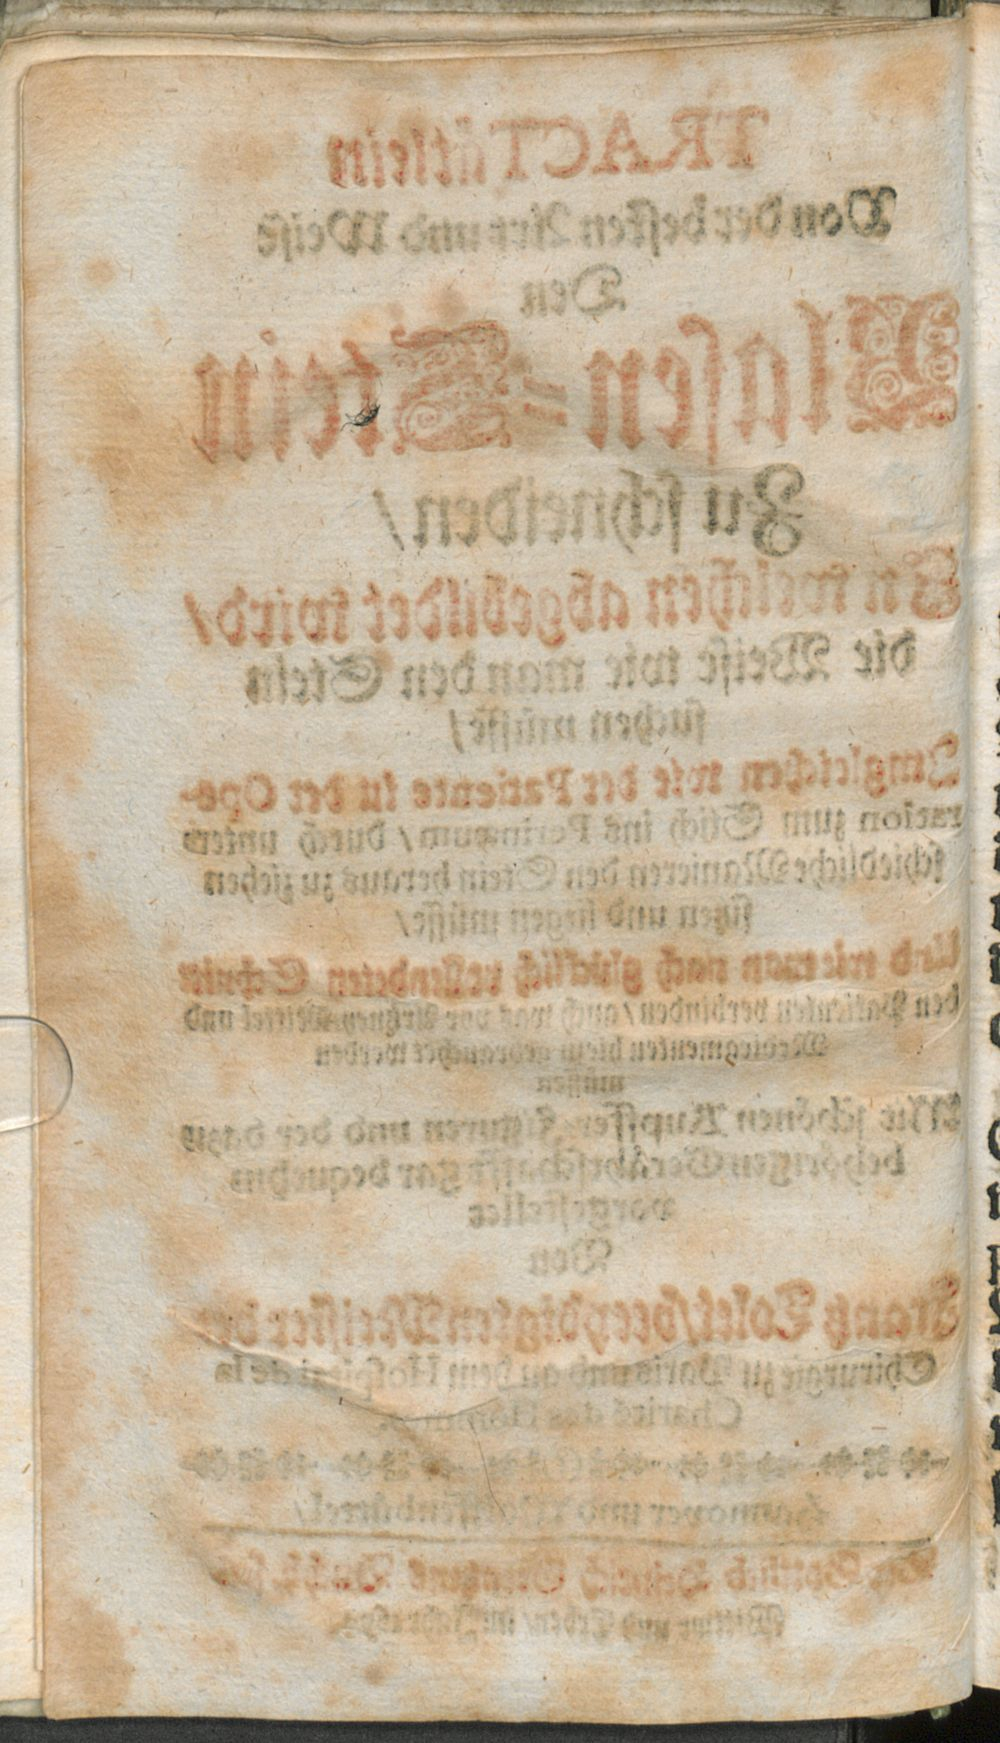 TRACTätlein
Von der besten Art und Weise
Den
Blasen-Stein
Zu schneiden/
In welchen abgebildet wird/
die Weise wie man den Stein
suchen müsse/
Imgleichen wie der Patiente in der Ope-
ration zum Stich ins Perinæum/ durch unter-
schiedliche Manieren den Stein heraus zu ziehen
sitzen und liegen müsse/
Und wie man nach glücklich vollendeten Schnitt
den Patienten verbinden/ auch was vor Artzney-Mittel und
Medicamenten hiezu gebrauchet werden
müssen
Mit schönen Kupffer-Figuren und der dazu
behörigen Geräthschafft gar bequehm
vorgestellet
Von
Frantz Tolet/ beeydigten Meister der
Chirurgie zu Paris und an dem Hospital de la
Charité des Hommes.
Hannover und Wolffenbüttel/
Gottlieb Heinrich Grentzens
Wittwe und Erben/ im Jahr